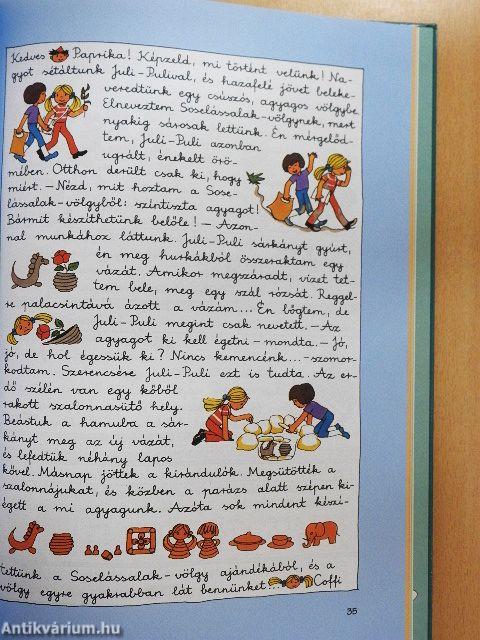 Kedves Paprika! Képzeld, mi történt velünk! Na-
gyot sétáltunk Juli-Pulival, és hazafelé jövet beleke-
veredtünk egy csúszós, agyagos völgybe.
Elneveztem Soselássalak-völgynek, mert
nyakig sárosak lettünk. Én mérgelőd-
tem, Juli-Puli azonban
ugrált, énekelt örö-
mében. Otthon derült csak ki, hogy
miért. – Nézd, mit hoztam a Sose-
lássalak-völgyből: színtiszta agyagot!
Bármit készíthetünk belőle! – Azon-
nal munkához láttunk. Juli-Puli sárkányt gyúrt,
én meg hurkákból összeraktam egy
vázát. Amikor megszáradt, vizet tet-
tem bele, meg egy szál rózsát. Reggel-
re palacsintává ázott a vázám... Én bőgtem, de
Juli-Puli megint csak nevetett. – Az
agyagot ki kell égetni – mondta. – Jó,
jó, de hol égessük ki? Nincs kemencénk... – szomor-
kodtam. Szerencsére Juli-Puli ezt is tudta. Az er-
dő szélén van egy kőből
rakott szalonnasütő hely.
Beástuk a hamuba a sár-
kányt meg az új vázát,
és lefedtük néhány lapos
kővel. Másnap jöttek a kirándulók. Megsütötték a
szalonnájukat, és közben a parázs alatt szépen ki-
égett a mi agyagunk. Azóta sok mindent készí-
tettünk a Soselássalak-völgy ajándékából, és a
völgy egyre gyakrabban lát bennünket... Coffi
35
Antikvárium.hu